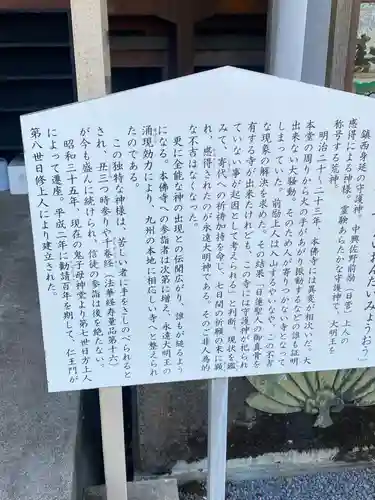 こおんだいみょうおう）
鎮西身延の守護神。中興佐野前励（日菅）上人の
感得による神様。霊験あらたかな守護神で、大明王を荒神と
称号する。
明治二十一、二十三年、本佛寺には異変が相次いだ。大
本堂の周りから火の手があがり振動するなどの誰も証明
出来ない大騒動。そのため人が寄りつかない寺となって
しまっていた。前励上人は入山するやいなや、この不吉
な現象の解決を求めた。その結果「日蓮聖人の御真骨を
有する寺が出来たけれども、この寺には守護神が祀られ
ていない事が起因として考えられる」と判断、現状を鑑
みて、寄代への祈祷加持を命じ、七日間の祈祷の末に顕
れ、感得されたのが永遠大明神である。そのご非人為的
な不吉はなくなった。
更に全能な神の出現との伝聞広がり、誰もが縋るよう
になる。本佛寺への参詣者は次第に増え、永遠大明王の
涌現効力により、九州の本地に相応しい寺へ整えられ
たのである。
この独特な神様は、苦しい者に手をさしのべられると
され、丑三つ時参りや千巻経（法華経寿量品第十六）
が今も盛んに続けられ、信徒の参詣は後を絶たない。
昭和三十五年、現在の鬼子母神堂より第七世日方上人
によって遷座。平成二年に勧請百年を期して、仁王門が
第八世日修上人により建立された。